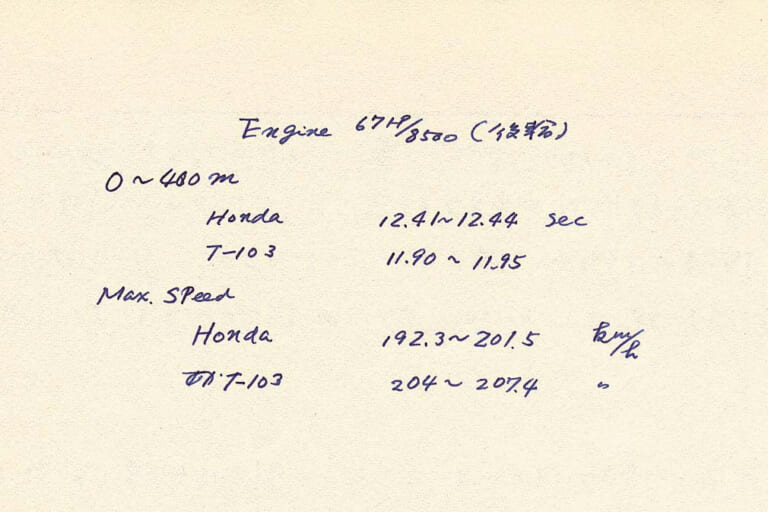 Engine 67HP/8500 (後輪)
0~400m
Honda 12.41~12.44 sec
T-103 11.90~11.95
Max. Speed
Honda 192.3~201.5 km/h
T-103 204~207.4 〃